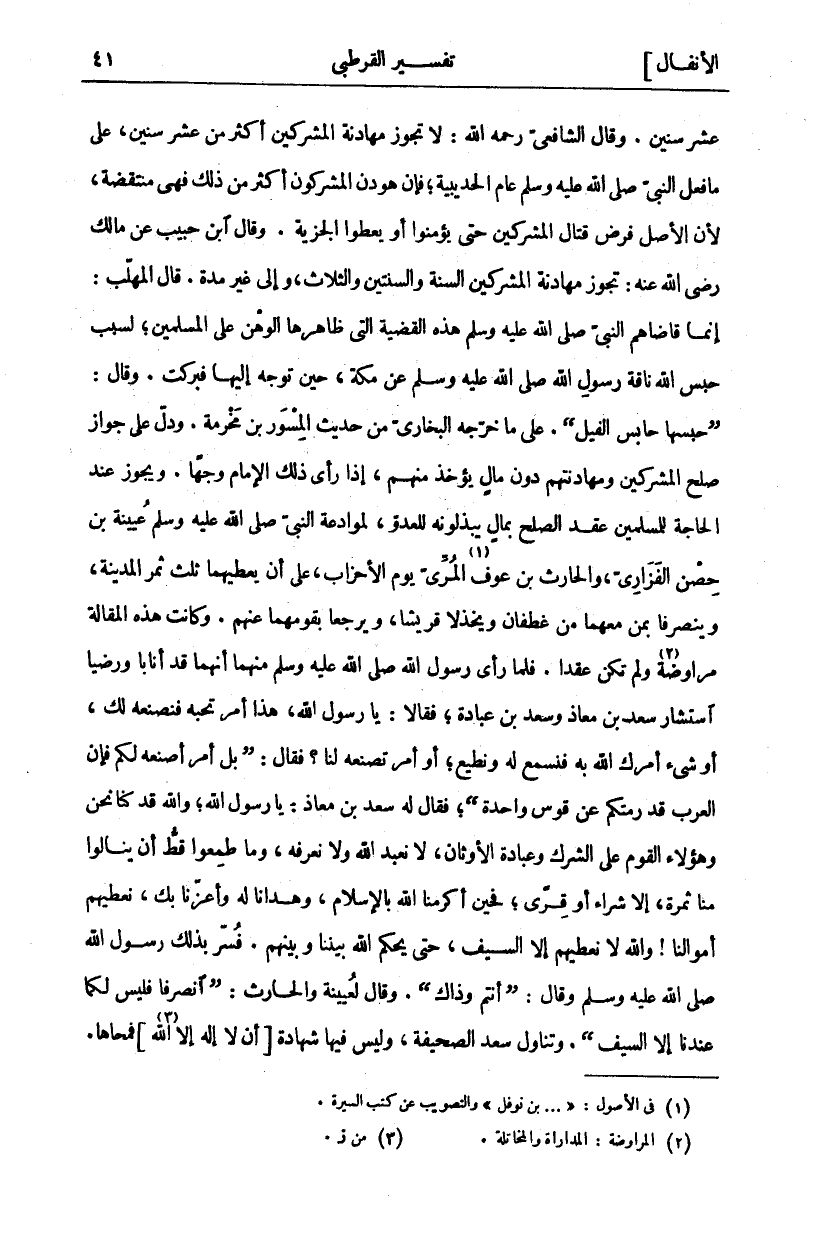 الأنفـال ] تفســـير القرطبى ٤١
عشر سنين . وقال الشافعىّ رحمه الله : لا تجوز مهادنة المشركين أكثر من عشر سنين، على
مافعل النبىّ صلى الله عليه وسلم عام الحديبية؛ فإن هودن المشركون أكثر من ذلك فهى منتقضة،
لأن الأصل فرض قتال المشركين حتى يؤمنوا أو يعطوا الجزية . وقال آبن حبيب عن مالك
رضى الله عنه : تجوز مهادنة المشركين السنة والسنتين والثلاث، وإلى غير مدة . قال المهلّب :
إنمـا قاضاهم النبىّ صلى الله عليه وسلم هذه القضية التى ظاهرها الوهْن على المسلمين؛ لسبب
حبس الله ناقة رسولِ الله صلى الله عليه وســلم عن مكة ، حين توجه إليهـا فبركت . وقال :
”حبسها حابس الفيل“ . على ما خرّجه البخارىّ من حديث المِسْوَر بن مَخْرمة . ودلّ على جواز
صلح المشركين ومهادنتهم دون مالٍ يؤخذ منهـم ، إذا رأى ذلك الإمام وجهًا . ويجوز عند
الحاجة للمسلمين عقـد الصلح بمالٍ يبذلونه للعدوّ ، لموادعة النبىّ صلى الله عليه وسلم عُيينة بن
حِصْن الفَزَارِىّ، والحارث بن عوف(١) المُرِّىّ يوم الأحزاب، على أن يعطيهما ثلث ثمر المدينة،
وينصرفا بمن معهما من غطفان ويخذلا قريشا، ويرجعا بقومهما عنهم . وكانت هذه المقالة
مراوضة(٢) ولم تكن عقدا . فلما رأى رسول الله صلى الله عليه وسلم منهما أنهما قد أنابا ورضيا
آستشار سعد بن معاذ وسعد بن عبادة؛ فقالا : يا رسول الله، هذا أمر تحبه فنصنعه لك ،
أو شىء أمرك الله به فنسمع له ونطيع؛ أو أمر تصنعه لنا ؟ فقال : ” بل أمر أصنعه لكم فإن
العرب قد رمتكم عن قوس واحدة “؛ فقال له سعد بن معاذ : يا رسول الله؛ والله قد كنا نحن
وهؤلاء القوم على الشرك وعبادة الأوثان، لا نعبد الله ولا نعرفه ، وما طمِعوا قطُّ أن ينـالوا
منا ثمرة، إلا شراء أو قِـرًى؛ فحين أكرمنا الله بالإسلام ، وهـدانا له وأعزّنا بك ، نعطيهم
أموالنا ! والله لا نعطيهم إلا الســيف ، حتى يحكم الله بيننا وبينهم . فَسُرّ بذلك رســول الله
صلى الله عليه وسلم وقال : ” أنتم وذاك “ . وقال لعُيينة والحـارث : ” آنصرفا فليس لكما
عندنا إلا السيف “ . وتناول سعد الصحيفة ، وليس فيها شهادة [ أن لا إله إلا الله(٣) ] فمحاها .
(١) فى الأصول : « ... بن نوفل » والتصويب عن كتب السيرة .
(٢) المراوضة : المداراة والمخاتلة . (٣) من ز .